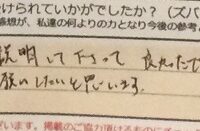 けられていかがでしたか?(ズバ
感想が、私達の何よりの力となり今後の参考
説明して下さって 良かったで
したいと思います。
ざいます。掲載のご協力頂けるものに